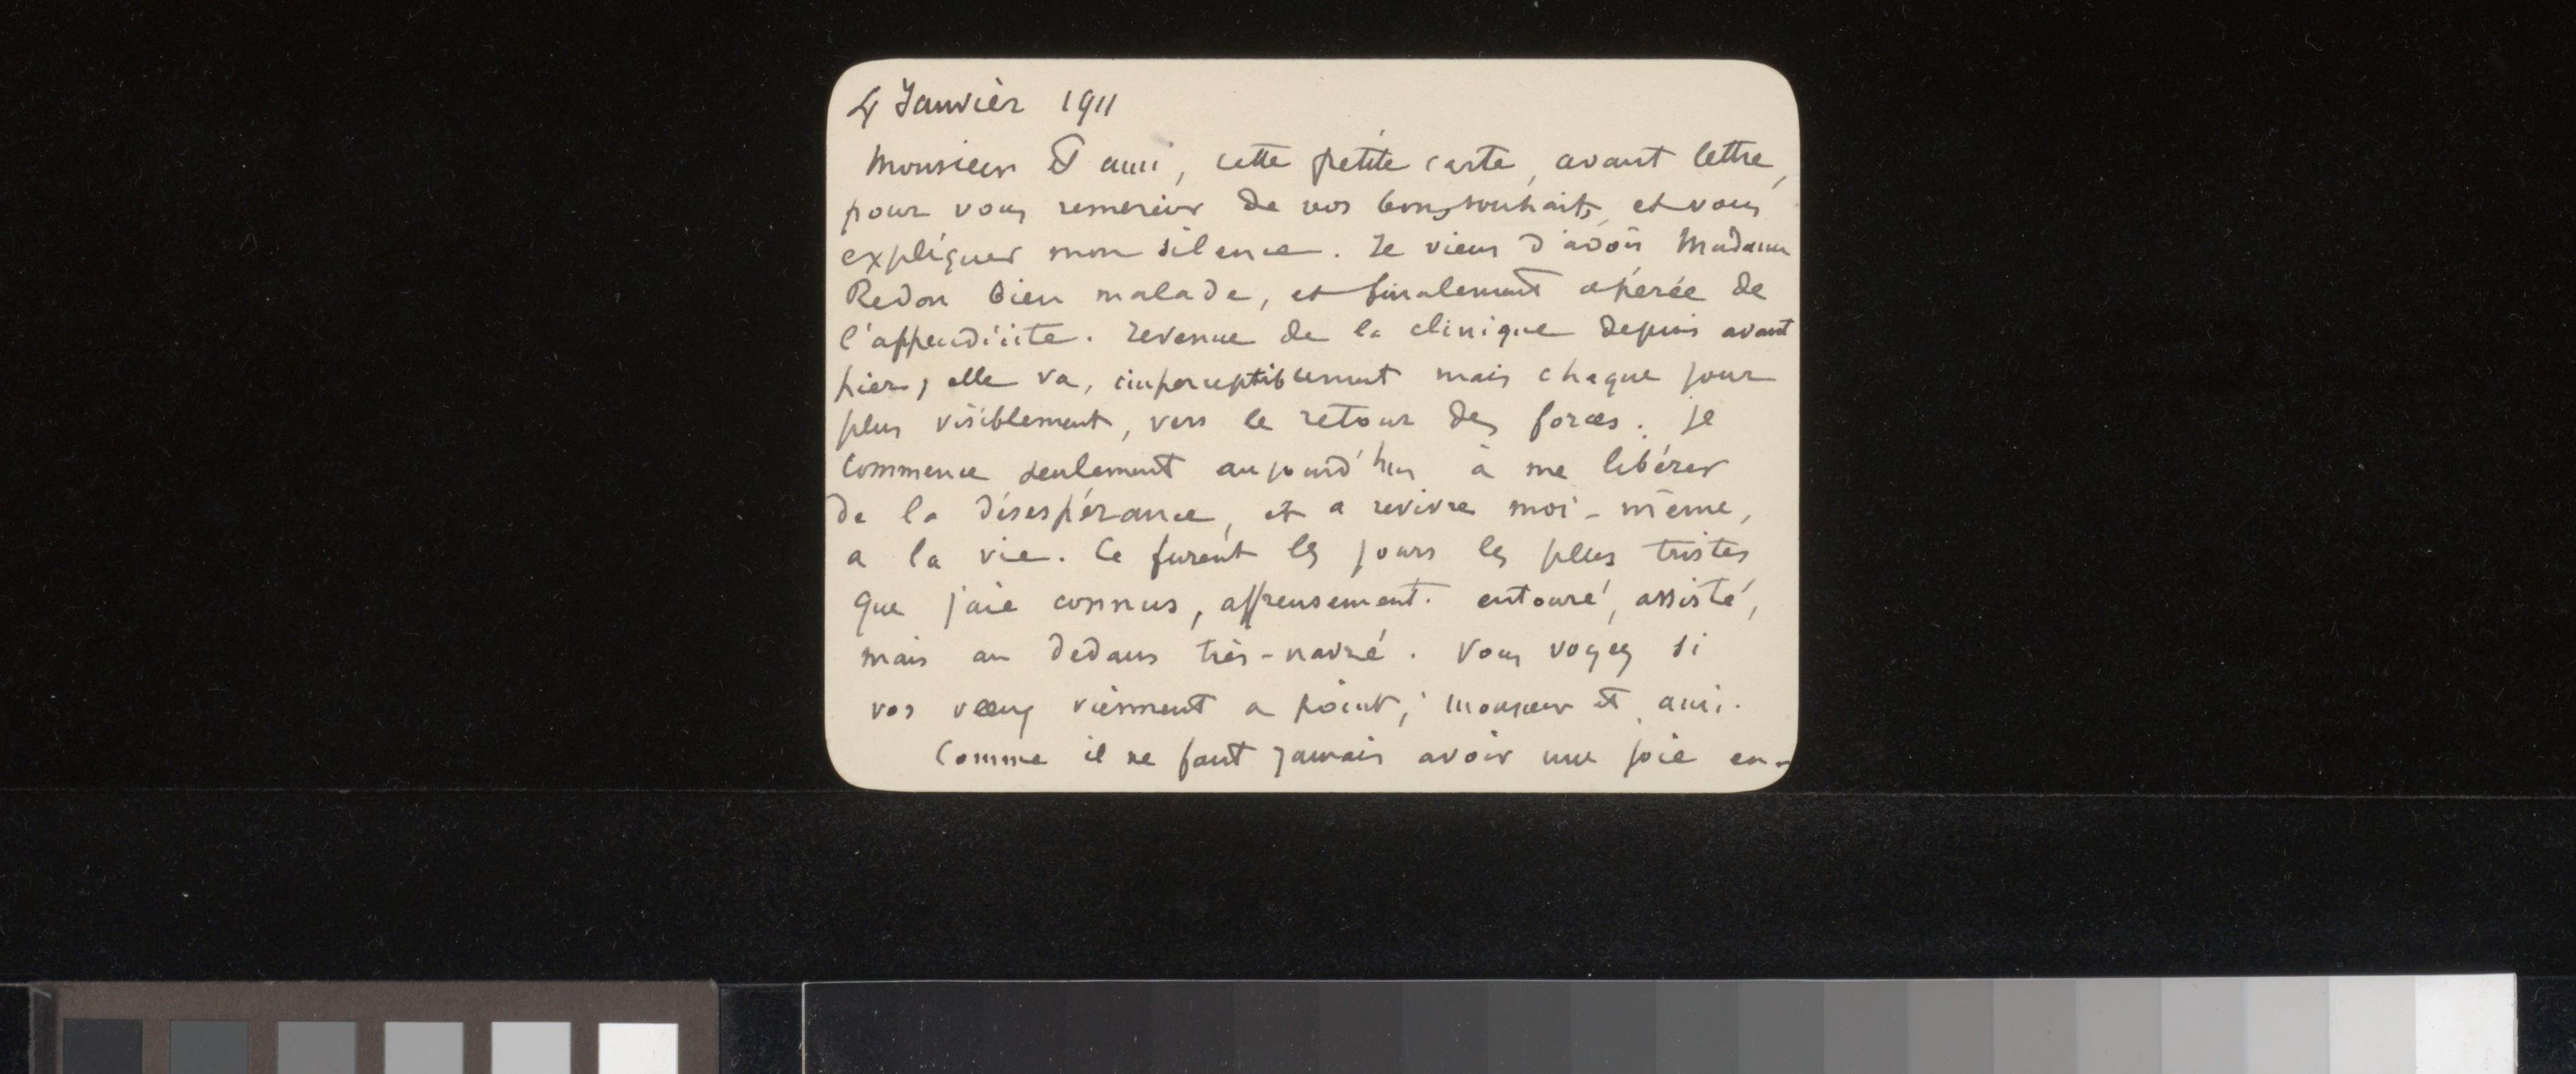 4 Janvièr 1911
Monsieur et ami, cette petite carte, avant lettre,
pour vous remercier de vos bons souhaits, et vous
expliquer mon silence. Je viens d'avoir Madame
Redon bien malade, et finalement opérée de
l'appendicite. Revenue de la clinique depuis avant
hier, elle va, imperceptiblement mais chaque jour
plus visiblement, vers le retour des forces. Je
commence seulement aujourd'hui à me libérer
de la désespérance, et a revivre moi-même,
a la vie. Ce furent les jours les plus tristes
que j'aie connus, affreusement. entouré, assisté,
mais au dedans très-navré. Vous voyez si
vos vœux viennent a point, monsieur et ami.
Comme il ne faut jamais avoir une joie en-